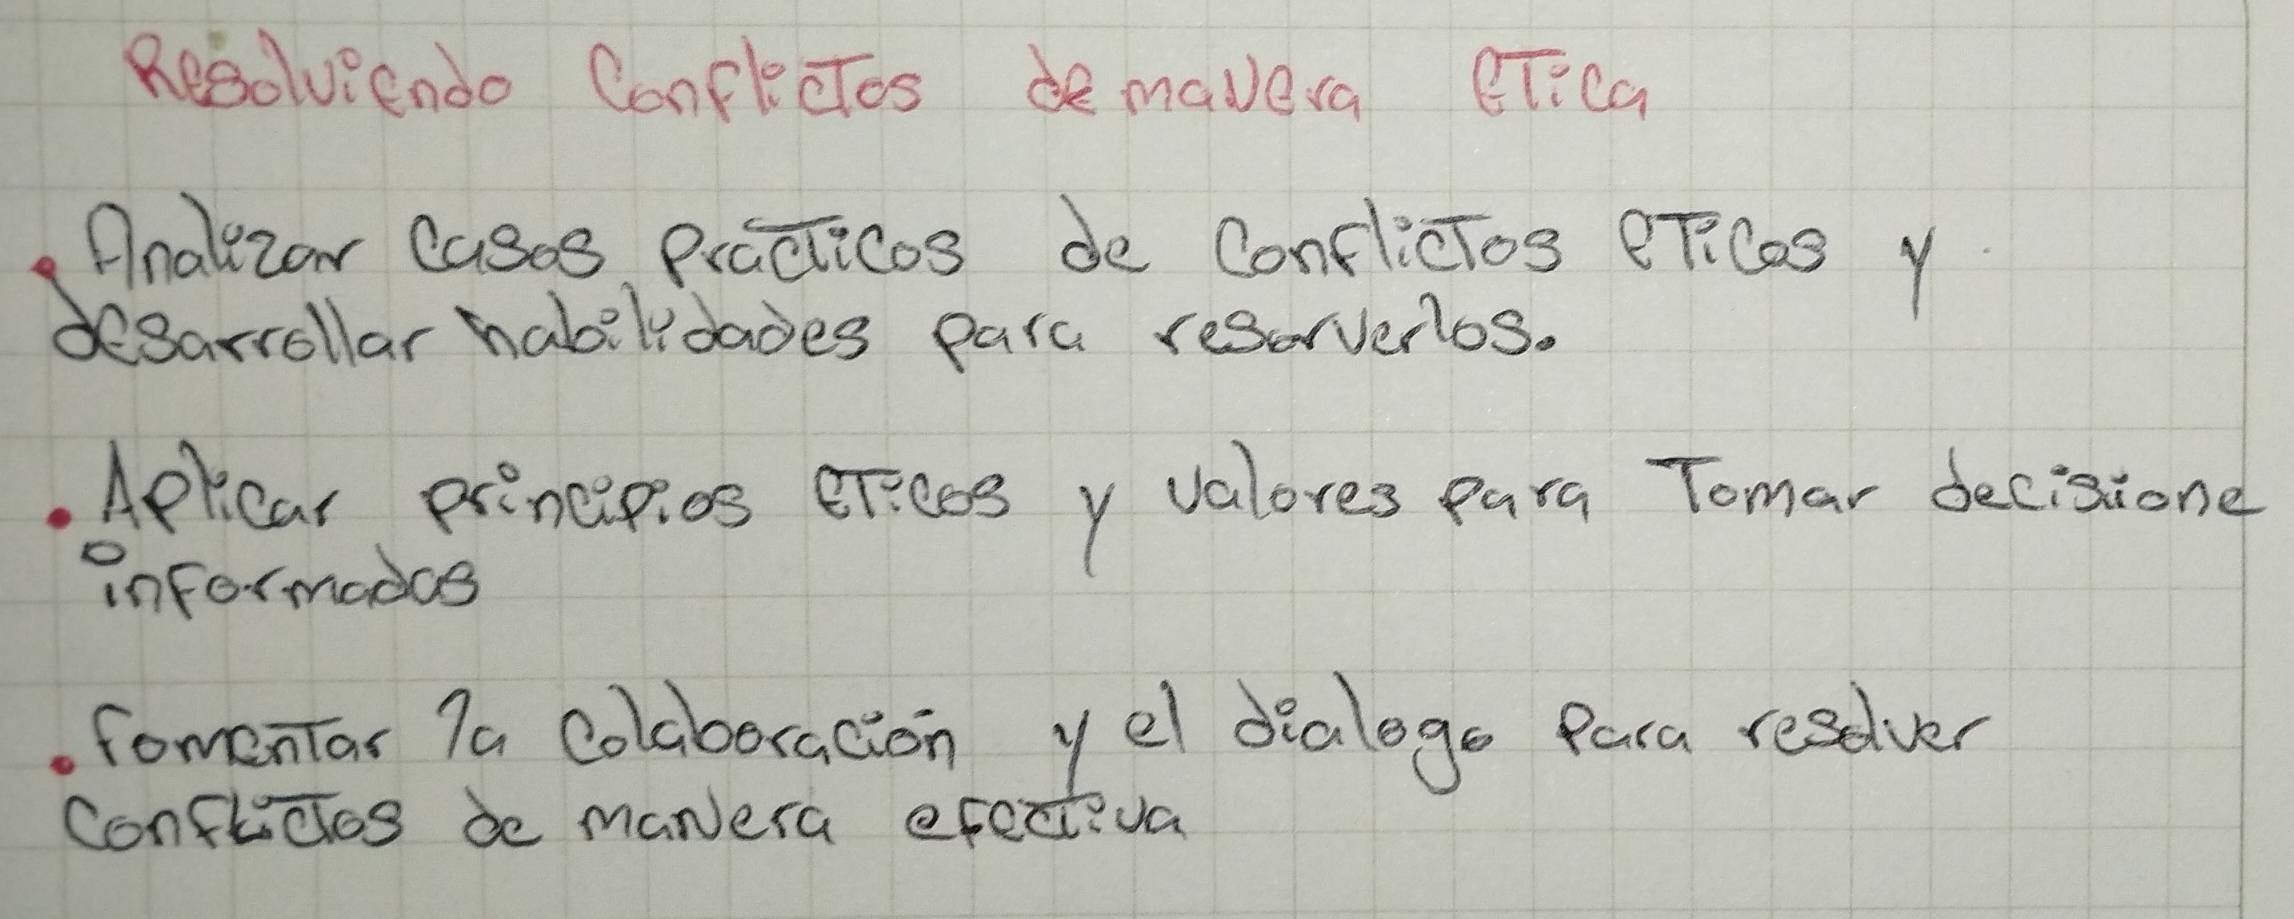 Resolviendo Conflictos de manera etica
• Analizar Casos Practicos de Conflictos eticos y
desarrollar habilidades para resorverlos.
• Aplicar principios eticos y valores para Tomar decisione
informadas
• fomentar la Colaboración y el dialogo Para resolver
Conflictos de manera efectiva